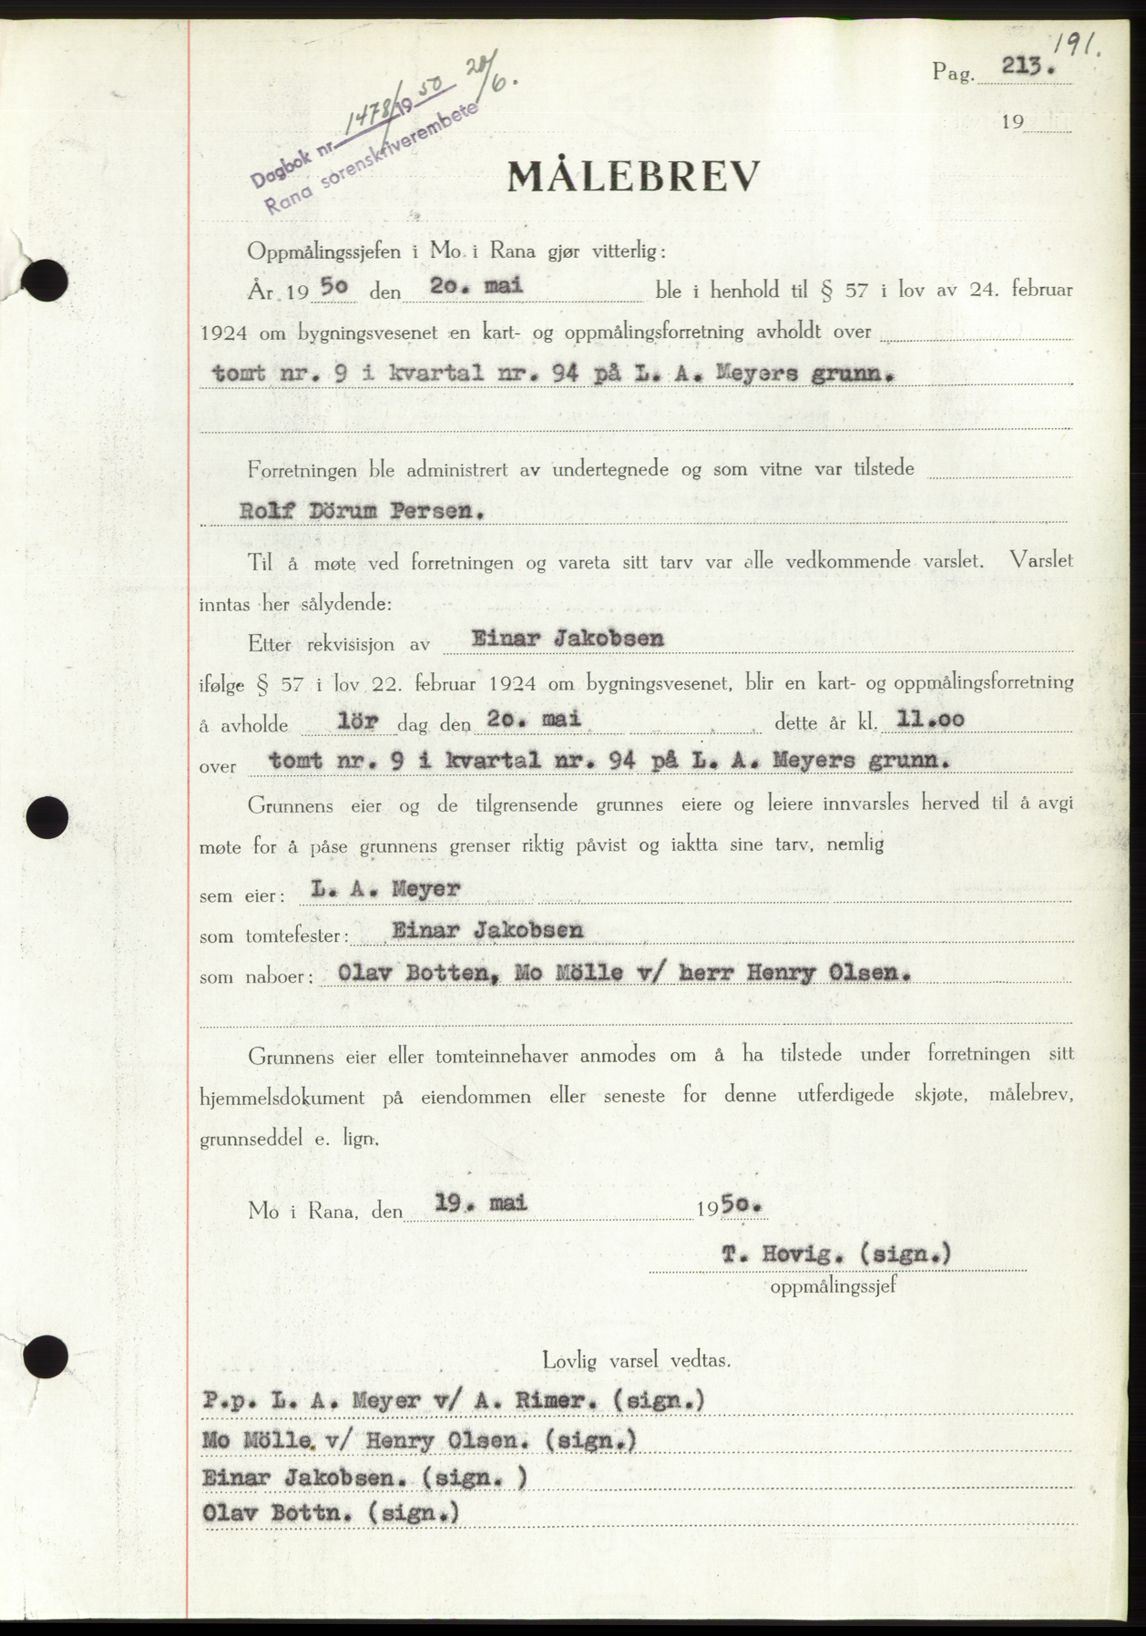 191.
Pag. 213.
19
Dagbok nr. 1478/1950 20/6.
Rana sorenskriverembete
MÅLEBREV
Oppmålingssjefen i Mo i Rana gjør vitterlig:
År 1950 den 20. mai ble i henhold til § 57 i lov av 24. februar
1924 om bygningsvesenet en kart- og oppmålingsforretning avholdt over
tomt nr. 9 i kvartal nr. 94 på L. A. Meyers grunn.
Forretningen ble administrert av undertegnede og som vitne var tilstede
Rolf Dörum Persen.
Til å møte ved forretningen og vareta sitt tarv var alle vedkommende varslet. Varslet
inntas her sålydende:
Etter rekvisisjon av Einar Jakobsen
ifølge § 57 i lov 22. februar 1924 om bygningsvesenet, blir en kart- og oppmålingsforretning
å avholde lör dag den 20. mai dette år kl. 11.00
over tomt nr. 9 i kvartal nr. 94 på L. A. Meyers grunn.
Grunnens eier og de tilgrensende grunnes eiere og leiere innvarsles herved til å avgi
møte for å påse grunnens grenser riktig påvist og iaktta sine tarv, nemlig
sem eier: L. A. Meyer
som tomtefester: Einar Jakobsen
som naboer: Olav Botten, Mo Mölle v/ herr Henry Olsen.
Grunnens eier eller tomteinnehaver anmodes om å ha tilstede under forretningen sitt
hjemmelsdokument på eiendommen eller seneste for denne utferdigede skjøte, målebrev,
grunnseddel e. lign.
Mo i Rana, den 19. mai 1950.
T. Hovig. (sign.)
oppmålingssjef
Lovlig varsel vedtas.
P.p. L. A. Meyer v/ A. Rimer. (sign.)
Mo Mölle. v/ Henry Olsen. (sign.)
Einar Jakobsen. (sign. )
Olav Bottn. (sign.)